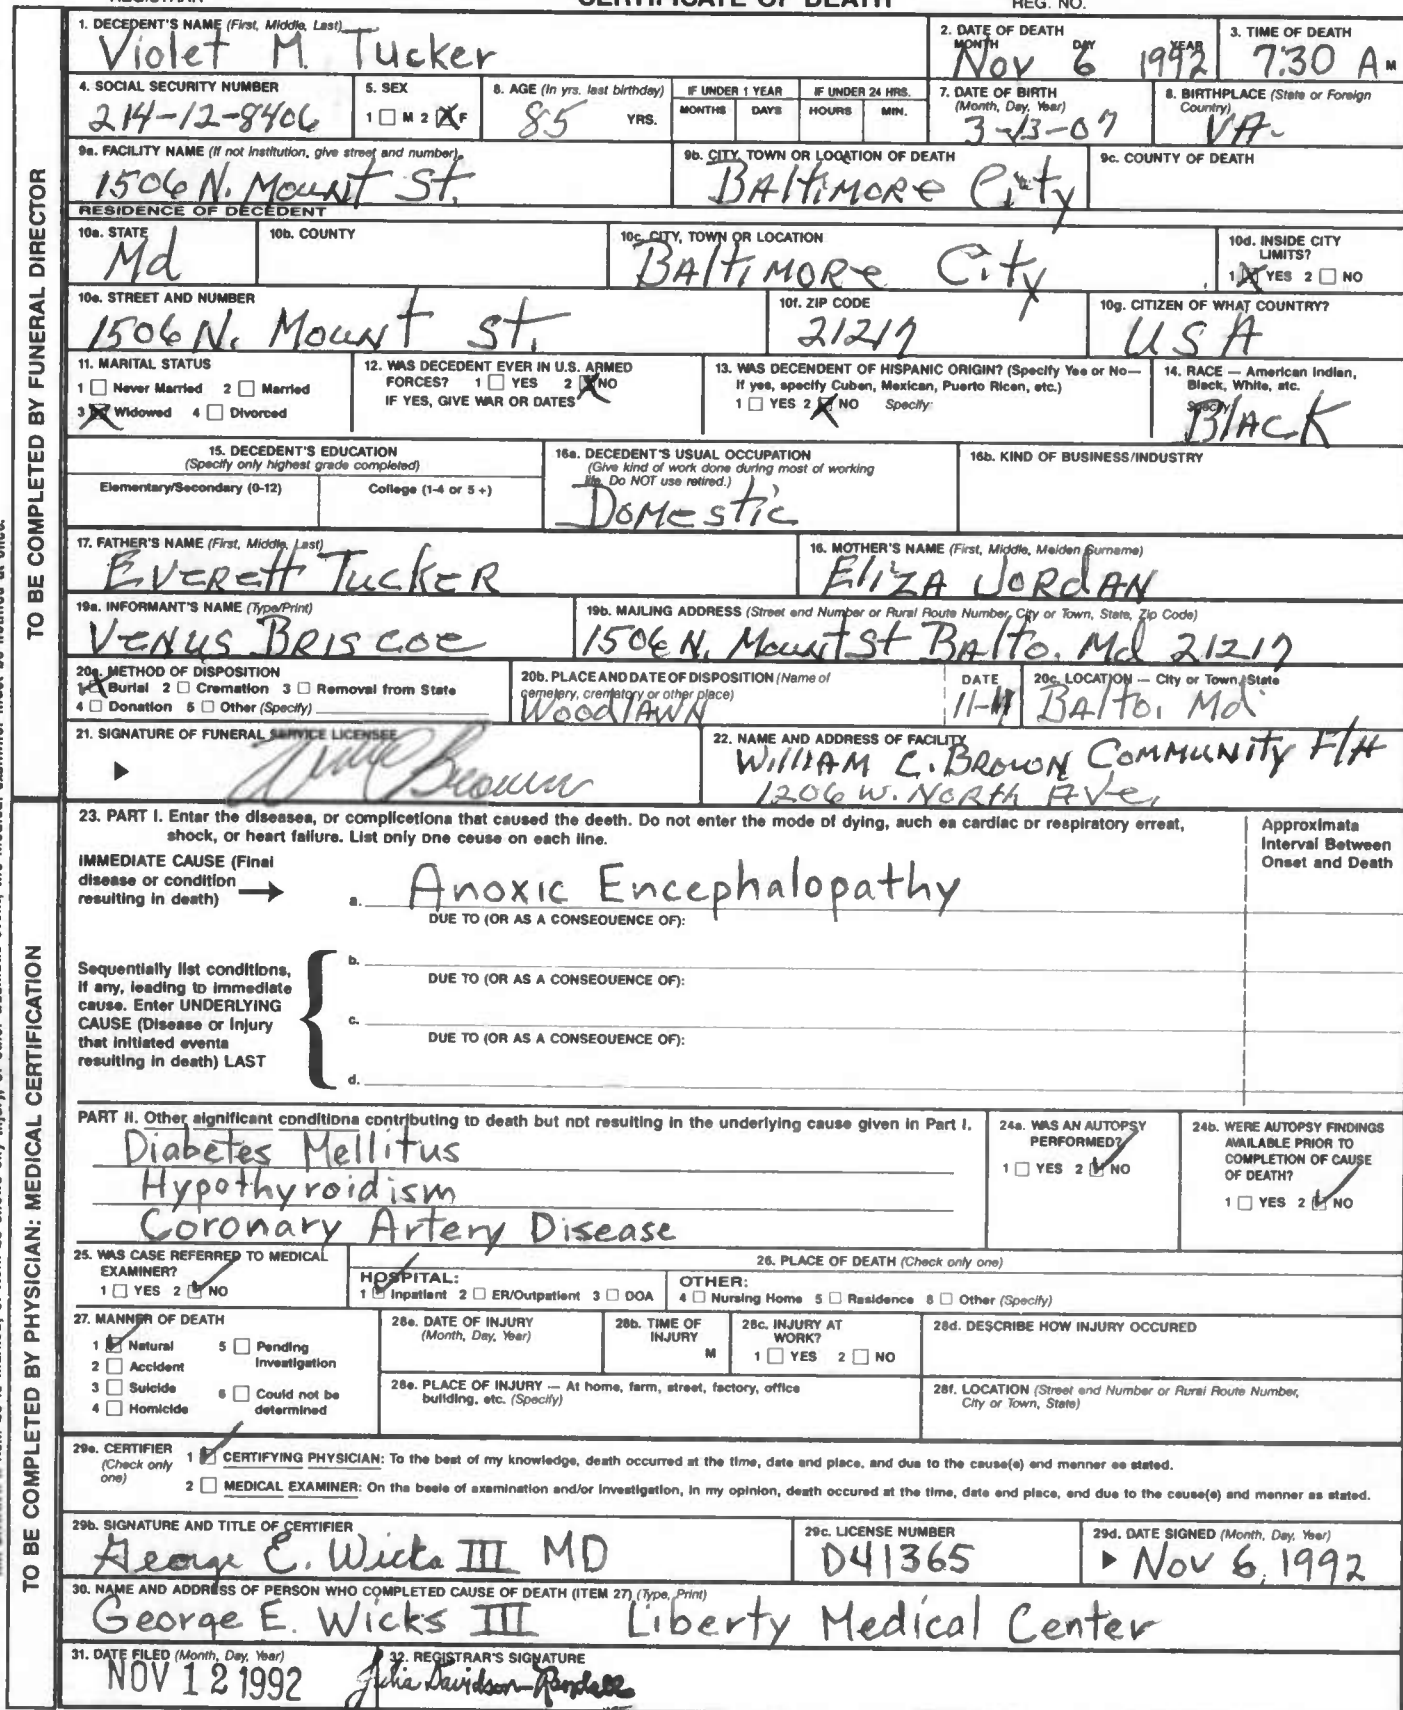 CERTIFICATE OF DEATH
REG. NO.
TO BE COMPLETED BY FUNERAL DIRECTOR
1. DECEDENT'S NAME (First, Middle, Last)
Violet M. Tucker
2. DATE OF DEATH
MONTH DAY YEAR
Nov 6 1992
3. TIME OF DEATH
7:30 A M
4. SOCIAL SECURITY NUMBER
214-12-8406
5. SEX
1 M 2 X F
8. AGE (In yrs. last birthday)
85 YRS.
IF UNDER 1 YEAR
MONTHS DAYS
IF UNDER 24 HRS.
HOURS MIN.
7. DATE OF BIRTH
(Month, Day, Year)
3-13-07
8. BIRTHPLACE (State or Foreign
Country)
VA.
9a. FACILITY NAME (If not institution, give street and number)
1506 N. Mount St.
9b. CITY, TOWN OR LOCATION OF DEATH
BALTIMORE City
9c. COUNTY OF DEATH
RESIDENCE OF DECEDENT
10a. STATE
Md
10b. COUNTY
10c. CITY, TOWN OR LOCATION
BALTIMORE City
10d. INSIDE CITY
LIMITS?
1 X YES 2 NO
10e. STREET AND NUMBER
1506 N. Mount St.
10f. ZIP CODE
21217
10g. CITIZEN OF WHAT COUNTRY?
USA
11. MARITAL STATUS
1 Never Married 2 Married
3 X Widowed 4 Divorced
12. WAS DECEDENT EVER IN U.S. ARMED
FORCES? 1 YES 2 X NO
IF YES, GIVE WAR OR DATES
13. WAS DECENDENT OF HISPANIC ORIGIN? (Specify Yes or No—
If yes, specify Cuban, Mexican, Puerto Rican, etc.)
1 YES 2 X NO Specify:
14. RACE — American Indian,
Black, White, etc.
Specify
BlACK
15. DECEDENT'S EDUCATION
(Specify only highest grade completed)
Elementary/Secondary (0-12) College (1-4 or 5+)
16a. DECEDENT'S USUAL OCCUPATION
(Give kind of work done during most of working
life. Do NOT use retired.)
Domestic
16b. KIND OF BUSINESS/INDUSTRY
17. FATHER'S NAME (First, Middle, Last)
EVERETT TUCKER
16. MOTHER'S NAME (First, Middle, Maiden Surname)
ELIZA JORDAN
19a. INFORMANT'S NAME (Type/Print)
VENUS BRISCOE
19b. MAILING ADDRESS (Street and Number or Rural Route Number, City or Town, State, Zip Code)
1506 N. Mount St Balto. Md 21217
20a. METHOD OF DISPOSITION
1 X Burial 2 Cremation 3 Removal from State
4 Donation 5 Other (Specify)
20b. PLACE AND DATE OF DISPOSITION (Name of
cemetery, crematory or other place)
WOODlAWN
DATE
11-11
20c. LOCATION — City or Town, State
BAlto, Md
21. SIGNATURE OF FUNERAL SERVICE LICENSEE
Wm C Brown
22. NAME AND ADDRESS OF FACILITY
WILLIAM C. BROWN COMMUNITY F/H
1206 W. NORTH AVE.
TO BE COMPLETED BY PHYSICIAN: MEDICAL CERTIFICATION
23. PART I. Enter the diseases, or complications that caused the death. Do not enter the mode of dying, such as cardiac or respiratory arrest,
shock, or heart failure. List only one cause on each line.
Approximate
Interval Between
Onset and Death
IMMEDIATE CAUSE (Final
disease or condition
resulting in death)
a. Anoxic Encephalopathy
DUE TO (OR AS A CONSEQUENCE OF):
Sequentially list conditions,
if any, leading to immediate
cause. Enter UNDERLYING
CAUSE (Disease or injury
that initiated events
resulting in death) LAST
b.
DUE TO (OR AS A CONSEQUENCE OF):
c.
DUE TO (OR AS A CONSEQUENCE OF):
d.
PART II. Other significant conditions contributing to death but not resulting in the underlying cause given in Part I.
Diabetes Mellitus
Hypothyroidism
Coronary Artery Disease
24a. WAS AN AUTOPSY
PERFORMED?
1 YES 2 ✓ NO
24b. WERE AUTOPSY FINDINGS
AVAILABLE PRIOR TO
COMPLETION OF CAUSE
OF DEATH?
1 YES 2 ✓ NO
25. WAS CASE REFERRED TO MEDICAL
EXAMINER?
1 YES 2 ✓ NO
26. PLACE OF DEATH (Check only one)
HOSPITAL:
1 ✓ Inpatient 2 ER/Outpatient 3 DOA
OTHER:
4 Nursing Home 5 Residence 6 Other (Specify)
27. MANNER OF DEATH
1 ✓ Natural 5 Pending
Investigation
2 Accident
3 Suicide 6 Could not be
determined
4 Homicide
28a. DATE OF INJURY
(Month, Day, Year)
28b. TIME OF
INJURY
M
28c. INJURY AT
WORK?
1 YES 2 NO
28d. DESCRIBE HOW INJURY OCCURED
28e. PLACE OF INJURY — At home, farm, street, factory, office
building, etc. (Specify)
28f. LOCATION (Street and Number or Rural Route Number,
City or Town, State)
29a. CERTIFIER
(Check only
one)
1 ✓ CERTIFYING PHYSICIAN: To the best of my knowledge, death occurred at the time, date and place, and due to the cause(s) and manner as stated.
2 MEDICAL EXAMINER: On the basis of examination and/or investigation, in my opinion, death occured at the time, date and place, and due to the cause(s) and manner as stated.
29b. SIGNATURE AND TITLE OF CERTIFIER
George E. Wicks III MD
29c. LICENSE NUMBER
D41365
29d. DATE SIGNED (Month, Day, Year)
Nov 6, 1992
30. NAME AND ADDRESS OF PERSON WHO COMPLETED CAUSE OF DEATH (ITEM 27) (Type, Print)
George E. Wicks III Liberty Medical Center
31. DATE FILED (Month, Day, Year)
NOV 12 1992
32. REGISTRAR'S SIGNATURE
Julia Davidson-Randall